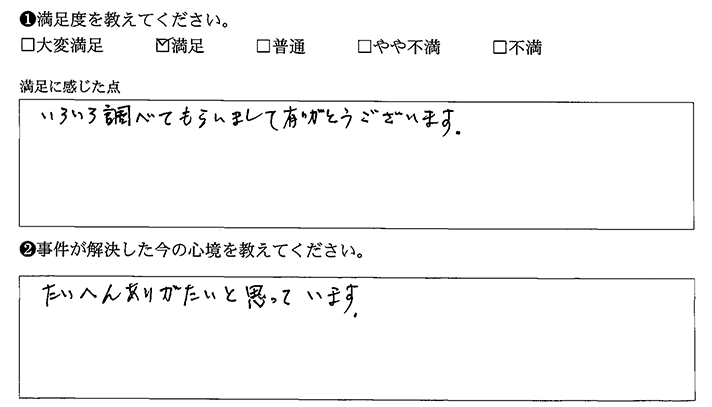 ❶満足度を教えてください。
□大変満足 ☑満足 □普通 □やや不満 □不満
満足に感じた点
いろいろ調べてもらいまして有りがとうございます.
❷事件が解決した今の心境を教えてください。
たいへんありがたいと思っています.